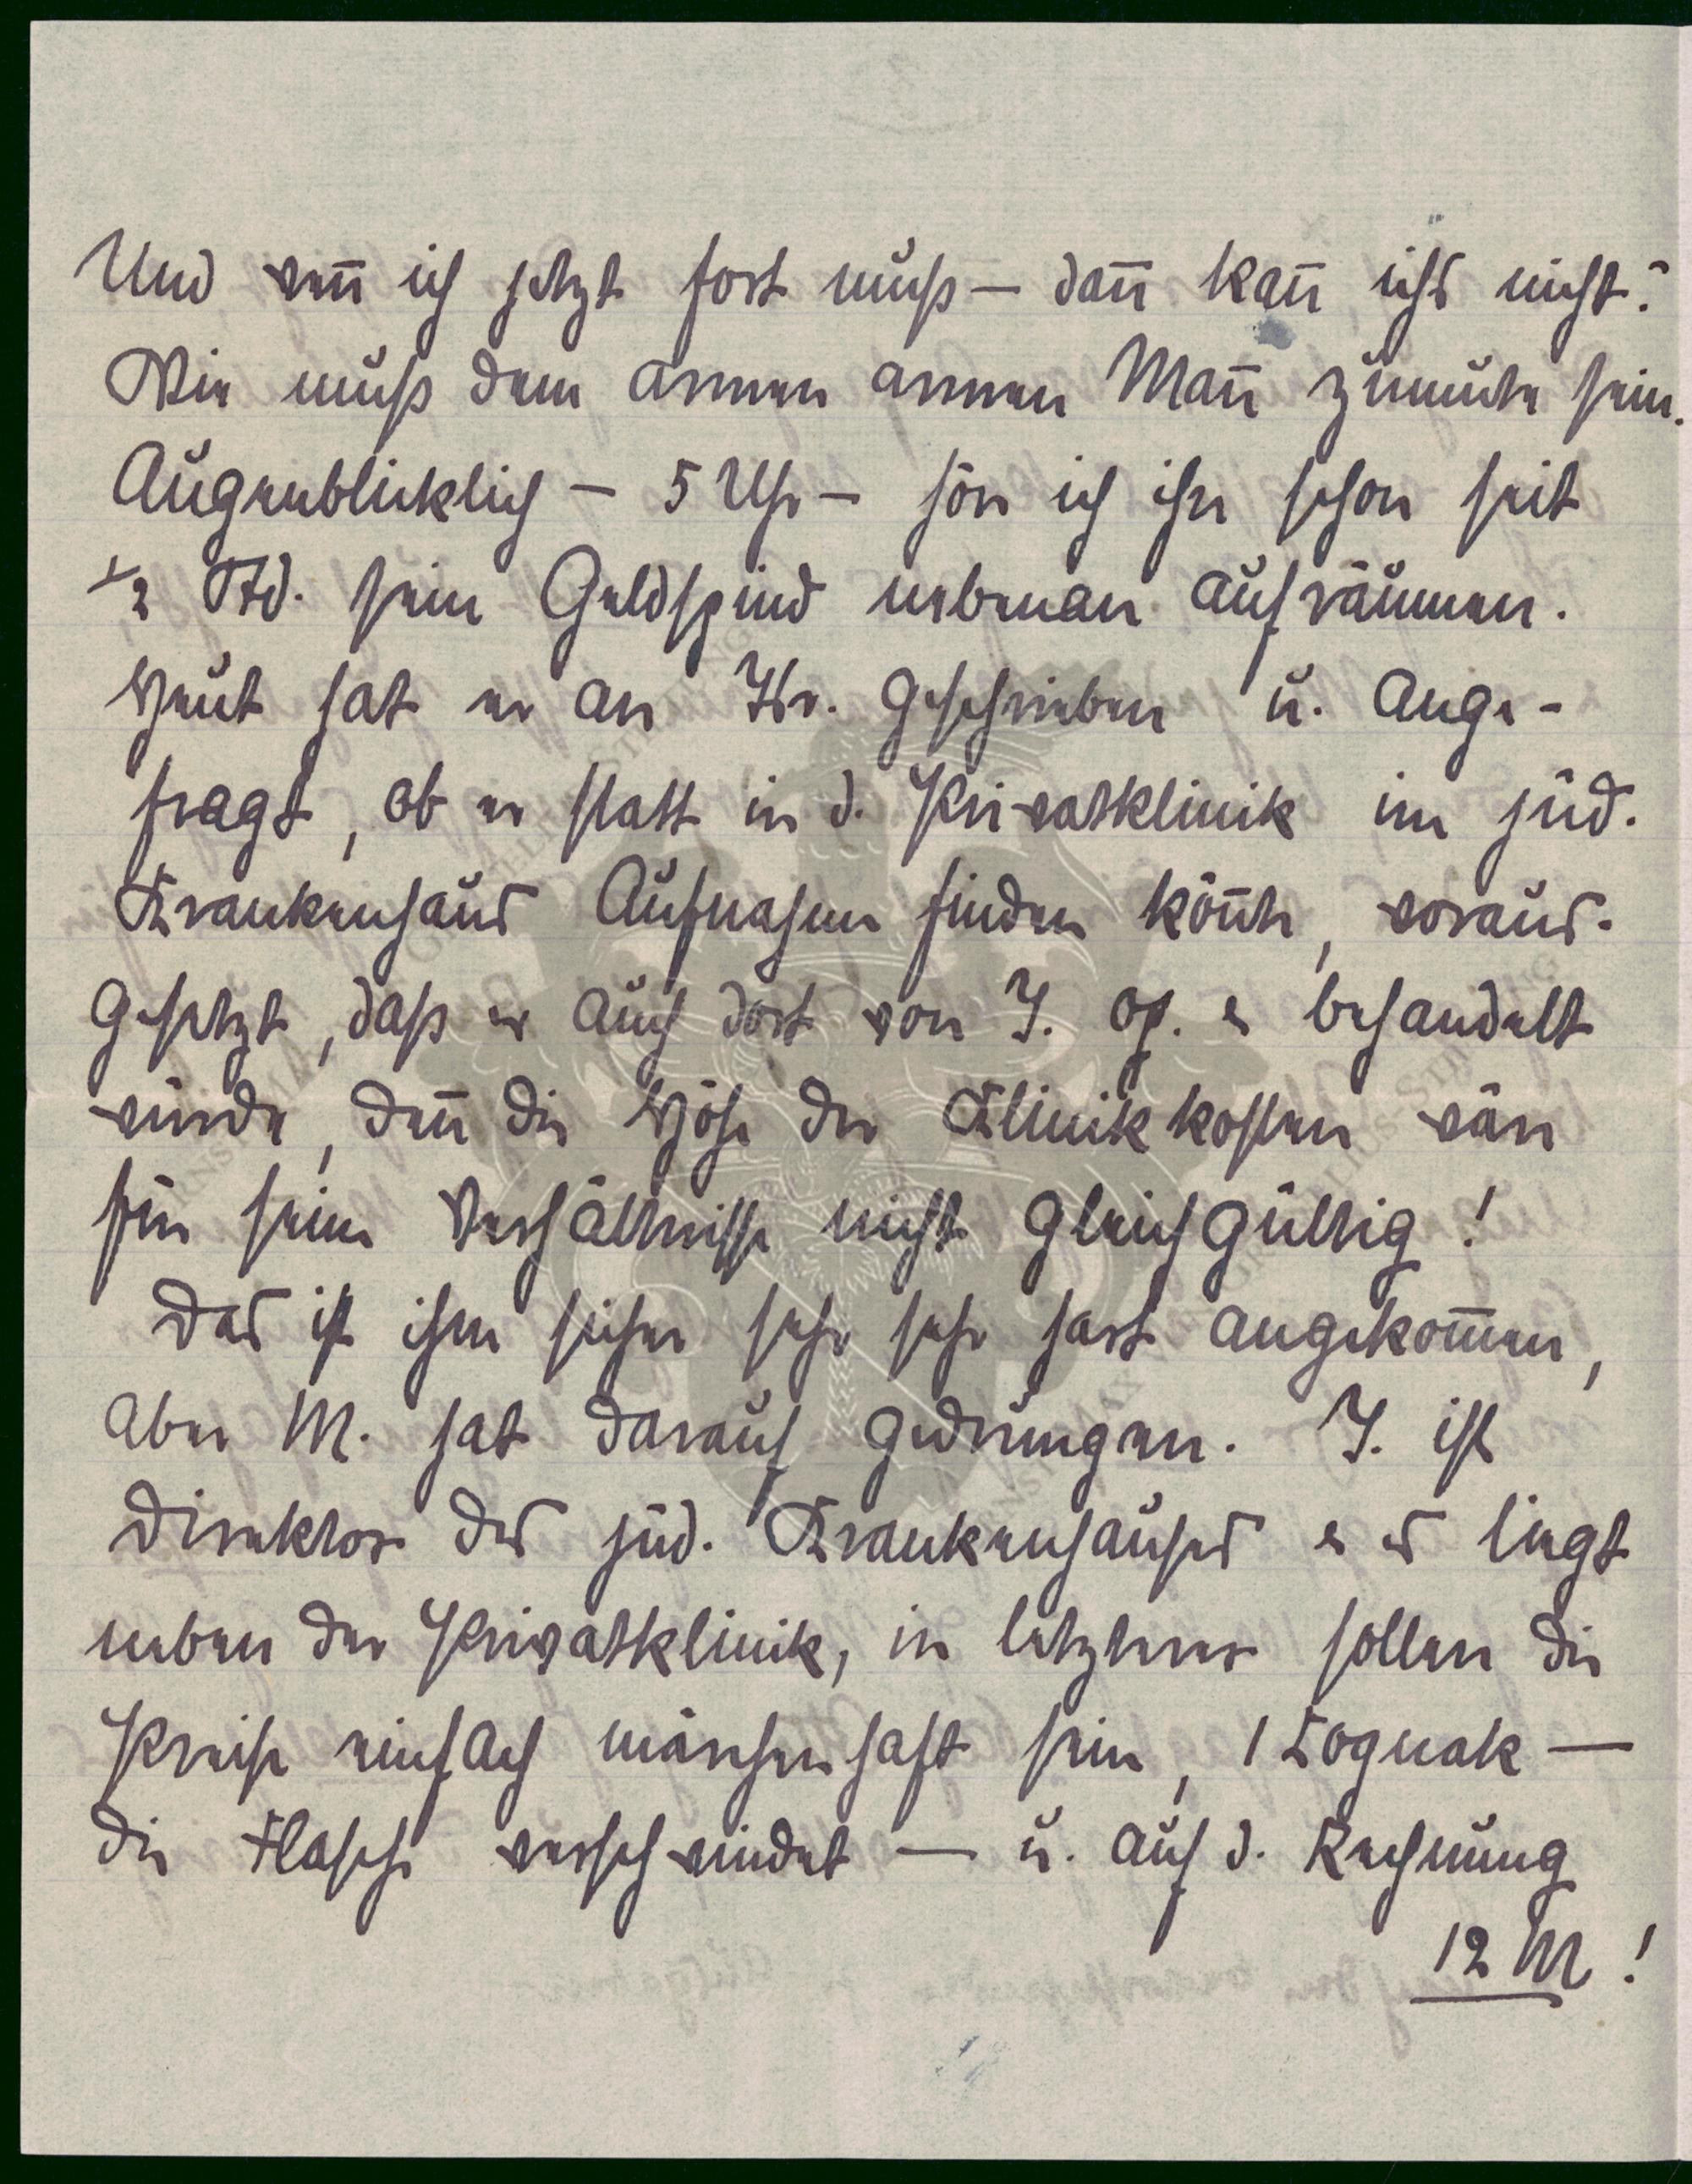 Und wen̄ ich jetzt fort muß — dan̄ kan̄ ichs nicht?"
Wie muß dem armen armen Man̄ zumute sein.
Augenblicklich — 5 Uhr — hör ich ihn schon seit
½ Std. sein Geldspind nebenan aufräumen.
Heut hat er an Isr. geschrieben u. ange-
fragt, ob er statt in d. Privatklinik im jüd.
Krankenhaus Aufnahme finden kön̄te, voraus-
gesetzt, daß er auch dort von I. op. & behandelt
würde, den̄ die Höhe der Klinikkosten wäre
für seine Verhältnisse nicht gleichgültig!
Das ist ihm sicher sehr sehr hart angekom̄en,
aber M. hat darauf gedrungen. I. ist
Direktor des jüd. Krankenhauses & es liegt
neben der Privatklinik, in letzterer sollen die
Preise einfach märchenhaft sein, 1 Cognak —
die Flasche verschwindet — u. auf d. Rechnung
12 M!